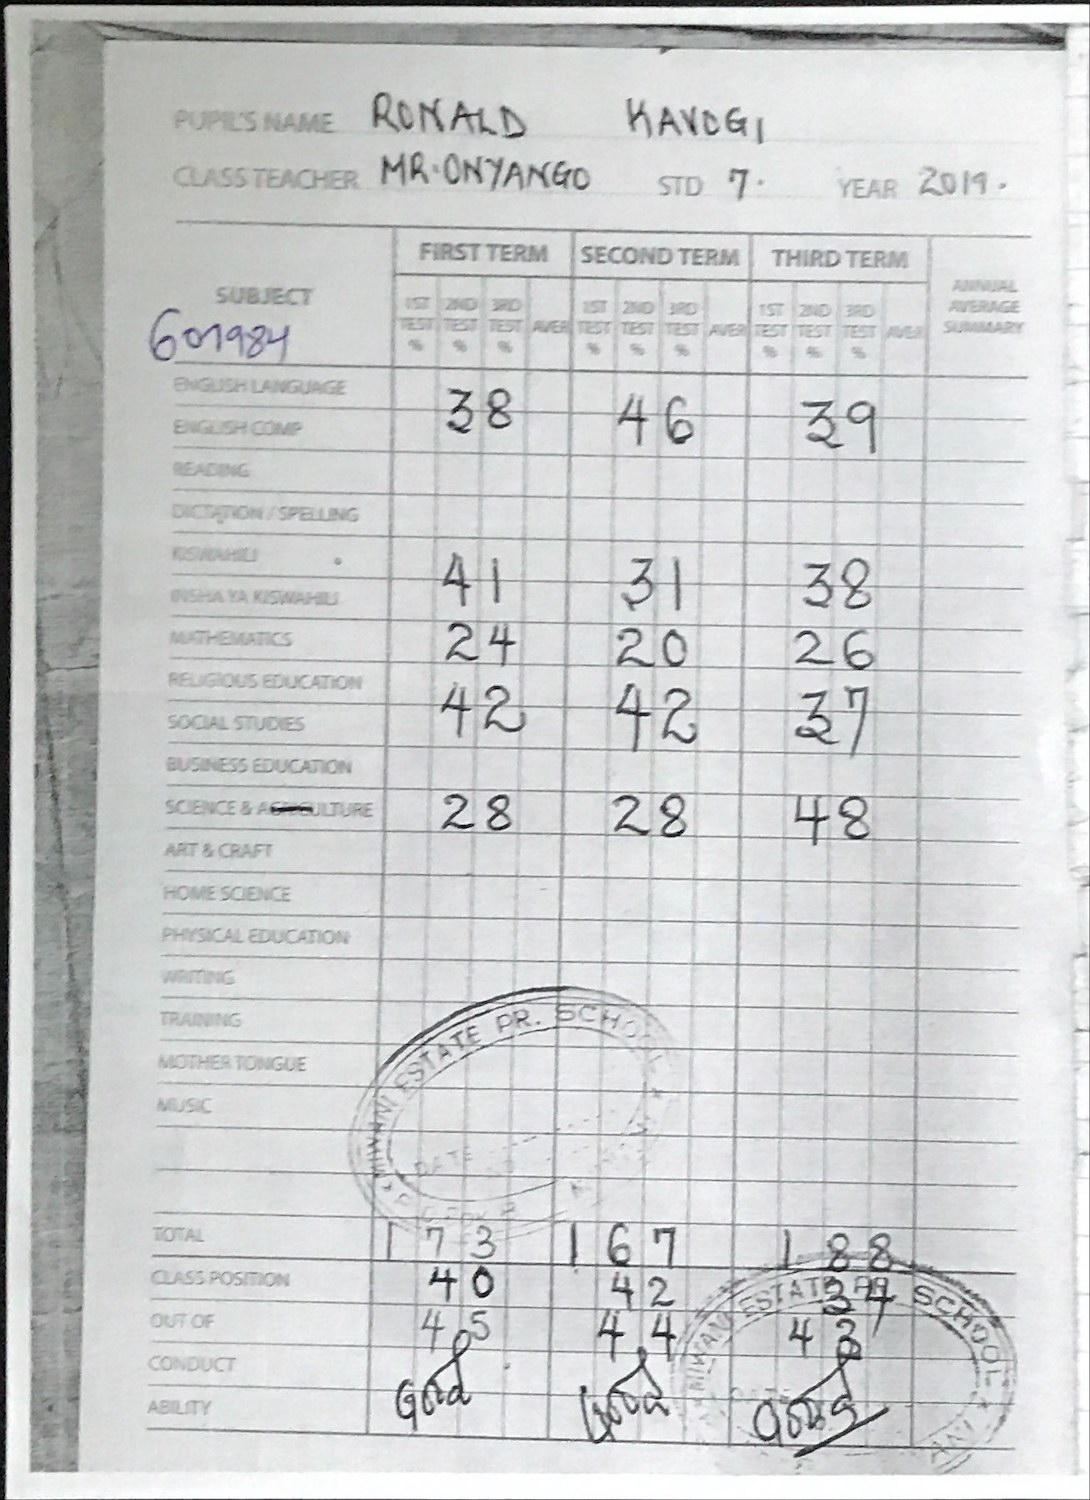 PUPIL'S NAME RONALD KAVOGI
CLASS TEACHER MR. ONYANGO STD 7. YEAR 2019.
SUBJECT FIRST TERM SECOND TERM THIRD TERM ANNUAL AVERAGE SUMMARY
1ST TEST % 2ND TEST % 3RD TEST % AVER 1ST TEST % 2ND TEST % 3RD TEST % AVER 1ST TEST % 2ND TEST % 3RD TEST % AVER
ENGLISH LANGUAGE
38 46 39
ENGLISH COMP
READING
DICTATION / SPELLING
KISWAHILI
41 31 38
INSHA YA KISWAHILI
MATHEMATICS 24 20 26
RELIGIOUS EDUCATION
42 42 37
SOCIAL STUDIES
BUSINESS EDUCATION
SCIENCE & AGRICULTURE 28 28 48
ART & CRAFT
HOME SCIENCE
PHYSICAL EDUCATION
WRITING
TRAINING
MOTHER TONGUE
MUSIC
ESTATE PR. SCHOOL
DATE
TOTAL 173 167 188
CLASS POSITION 40 42 34
OUT OF 45 44 43
CONDUCT
Good Good Good
ABILITY
ESTATE PR. SCHOOL